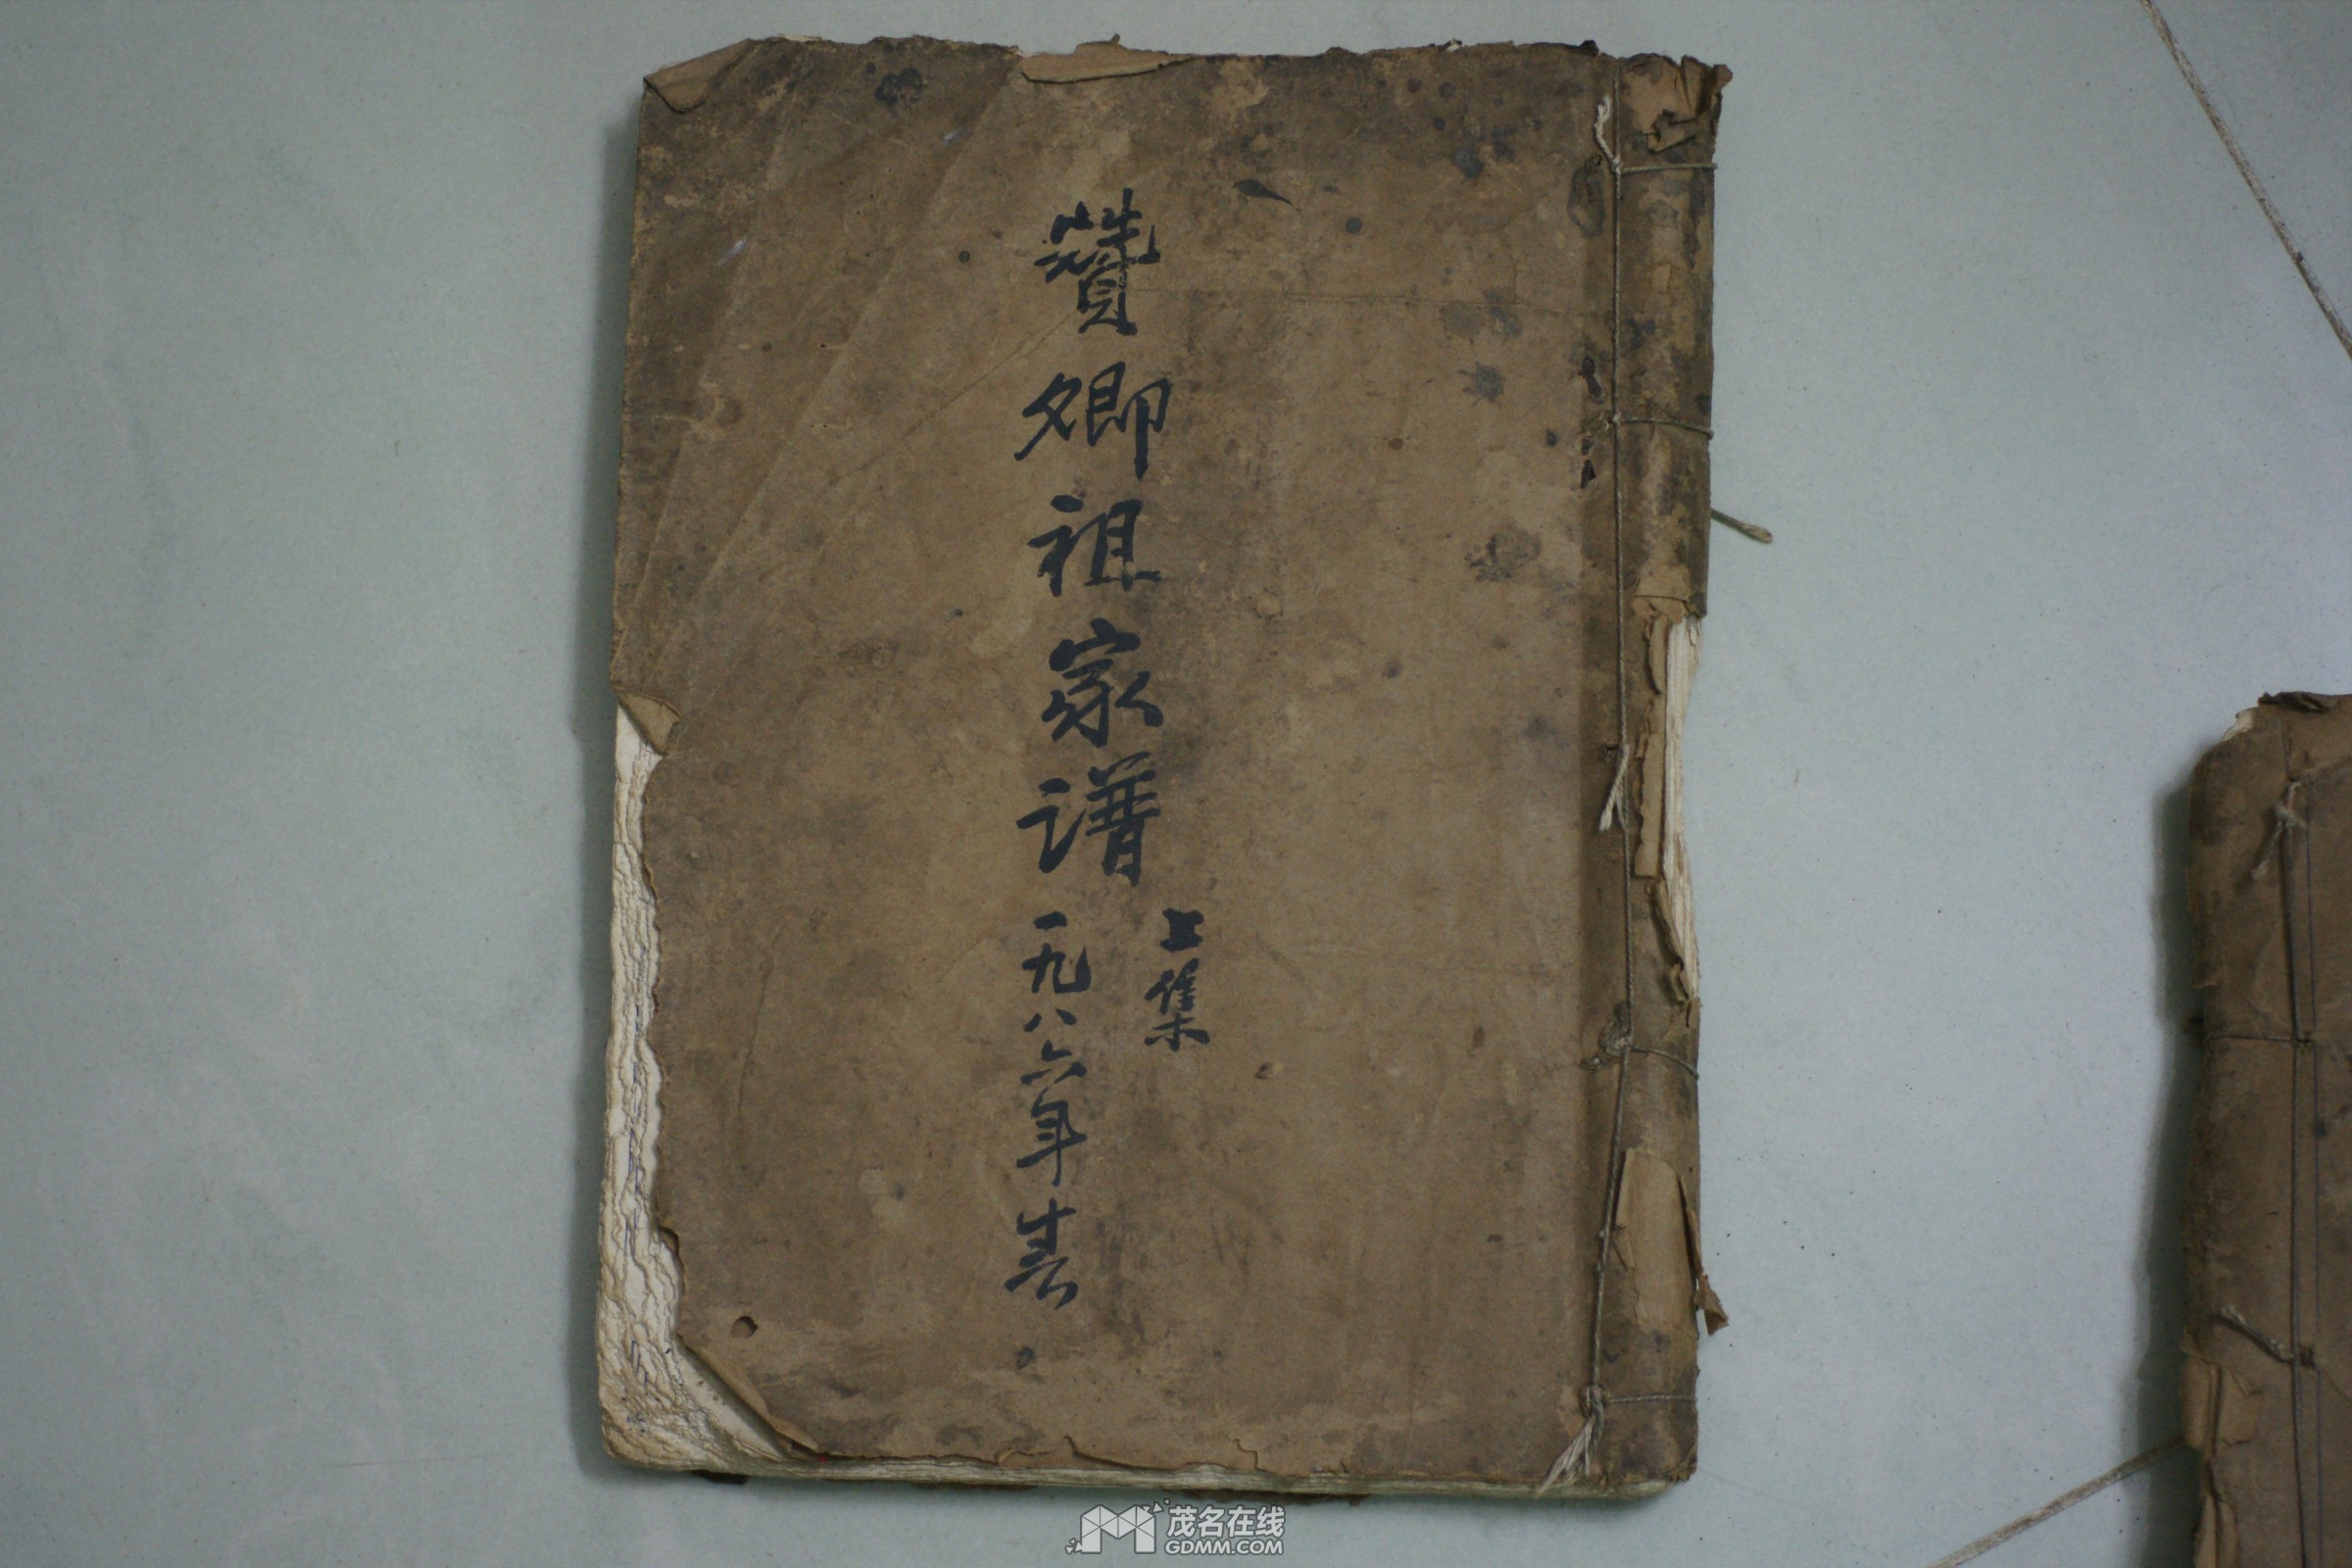 贊卿祖家谱
上集
一九八六年春
茂名在线
GDMM.COM